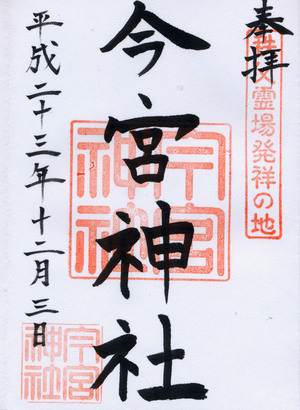 奉拝
秩父霊場発祥の地
今宮神社
今宮神社
平成二十三年十二月三日
今宮神社